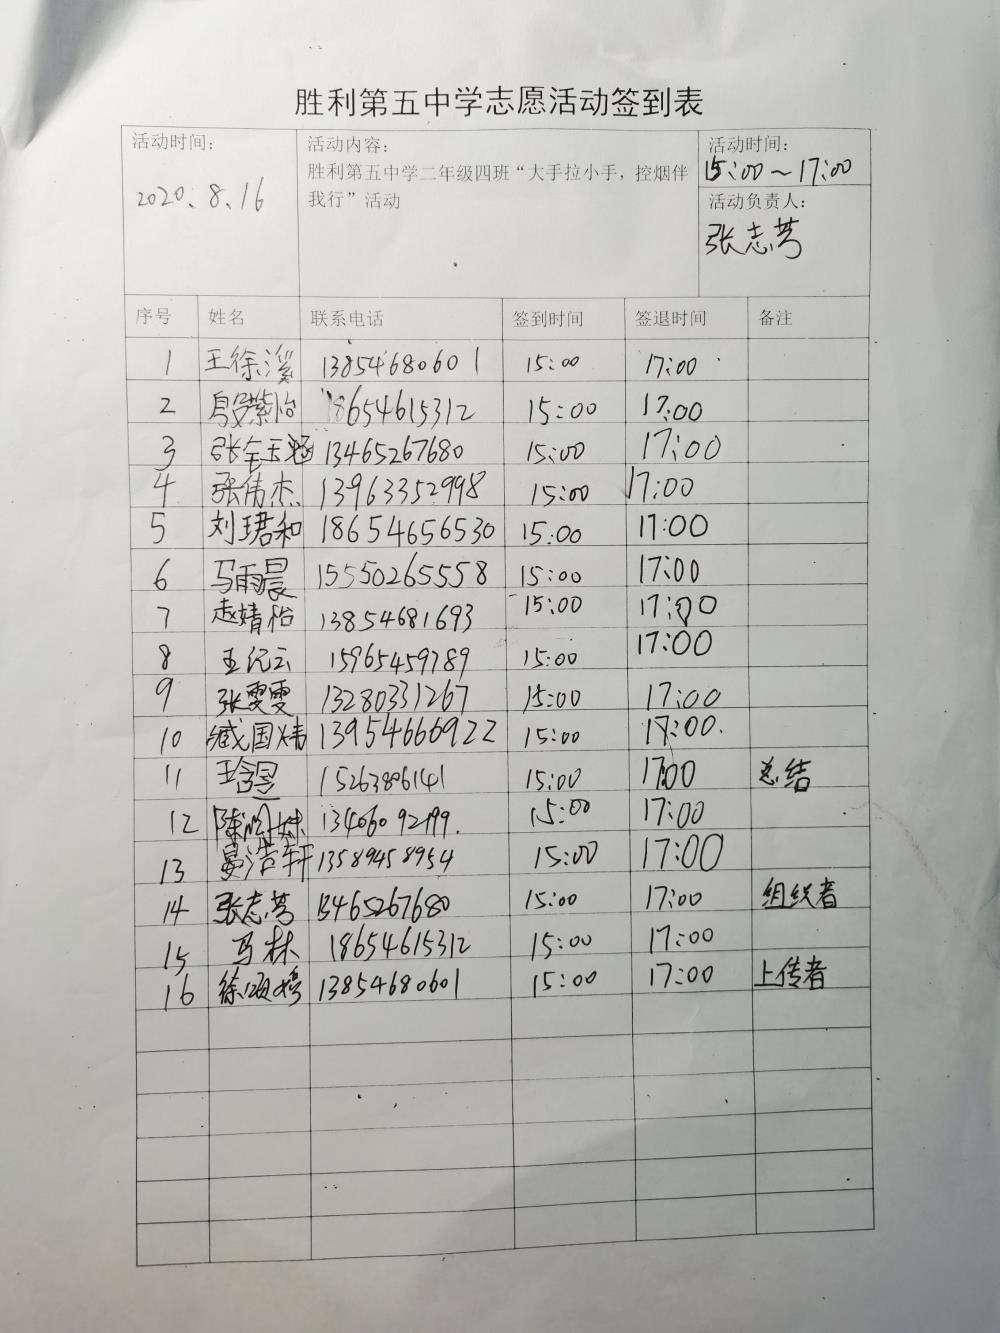 胜利第五中学志愿活动签到表
活动时间：
2020.8.16
活动内容：
胜利第五中学二年级四班“大手拉小手，控烟伴
我行”活动
活动时间：
15:00～17:00
活动负责人：
张志芳
序号 姓名 联系电话 签到时间 签退时间 备注
1 王徐溪 13854680601 15:00 17:00
2 殷紫怡 18654615312 15:00 17:00
3 张玉涵 13465267680 15:00 17:00
4 张伟杰 13963352998 15:00 17:00
5 刘珺和 18654656530 15:00 17:00
6 马雨晨 15550265558 15:00 17:00
7 赵婧怡 13854681693 15:00 17:00
8 王纪云 15965459789 15:00 17:00
9 张雯雯 13280331267 15:00 17:00
10 臧国炜 13954666922 15:00 17:00.
11 15263896141 15:00 17:00 总结
12 13406092199. 15:00 17:00
13 晏浩轩 13589458954 15:00 17:00
14 张志芳 13465267680 15:00 17:00 组织者
15 马林 18654615312 15:00 17:00
16 徐颂婷 13854680601 15:00 17:00 上传者